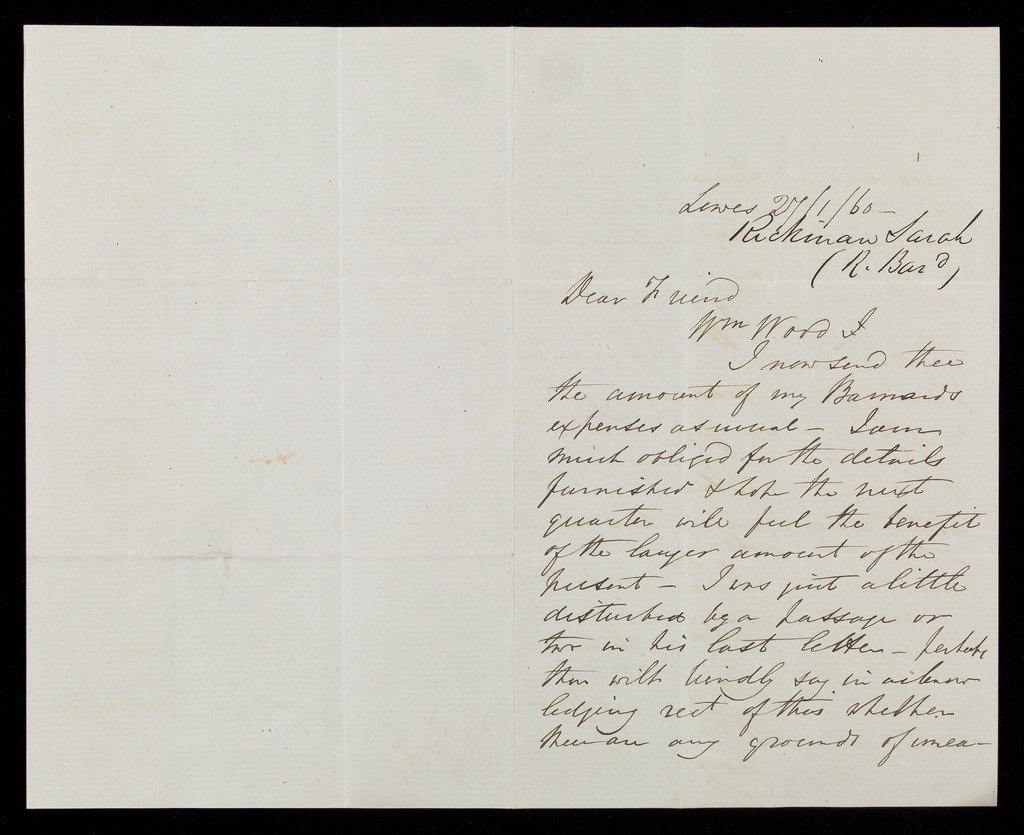 Lewes 27/1/60 -
Rickman Sarah
(R. Bar'd)
Dear Friend
Wm Wood
I now send thee
the amount of my Barnards
expenses as usual - I am
much obliged for the details
furnished & hope the next
quarter will feel the benefit
of the larger amount of the
present - I was just a little
disturbed by a passage or
two in his last letter - perhaps
thou wilt kindly say in acknow
ledging rect of this whether
there are any grounds of unea-